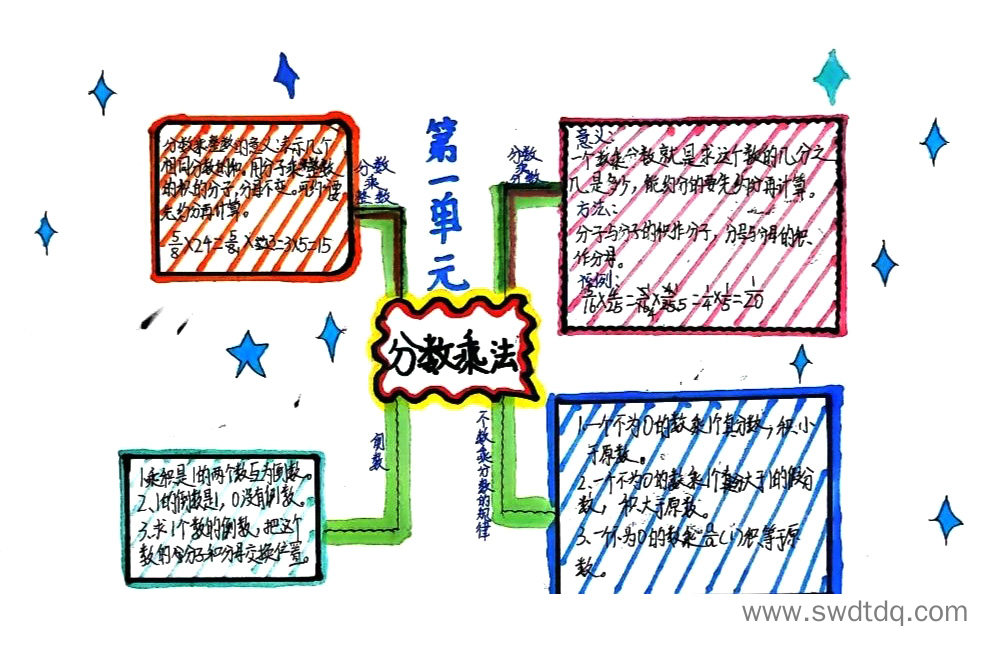 第一单元
分数乘法
分数
乘
整数
分数乘整数的意义:表示几个
相同分数的和。用分子乘整数
的积的分子,分母不变。可约要
先约分再计算。
5/8×24=5/8×3=3×5=15
分数
乘
分数
意义:
一个数乘分数就是求这个数的几分之
几是多少,能约分的要先约分再计算。
方法:
分子与分子的积作分子,分母与分母的积
作分母。
=1/4×1/5=1/20
倒数
1.乘积是1的两个数互为倒数。
2.1的倒数是1,0没有倒数。
3.求1个数的倒数,把这个
数的分子和分母交换位置。
不数乘分数的规律
1.一个不为0的数乘1个真分数,积小
于原数。
2.一个不为0的数乘1个大于1的假分
数,积大于原数。
3.一个不为0的数乘(1)积等于原
数。
www.swdtdq.com